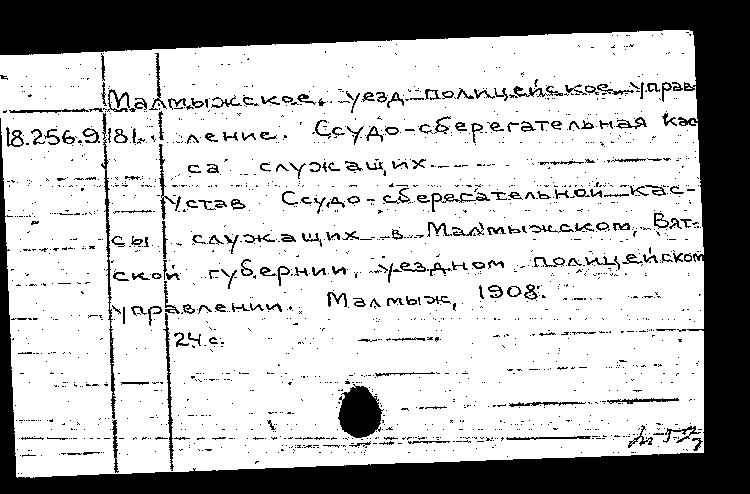 Малмыжское, уезд полицейское управ
18.256.9.181. ление. Ссудо-сберегательная кас
са служащих.
Устав Ссудо-сберегательной кас-
сы служащих в Малмыжском, Вят-
ской губернии, уездном полицейском
управлении. Малмыж, 1908.
24 с.